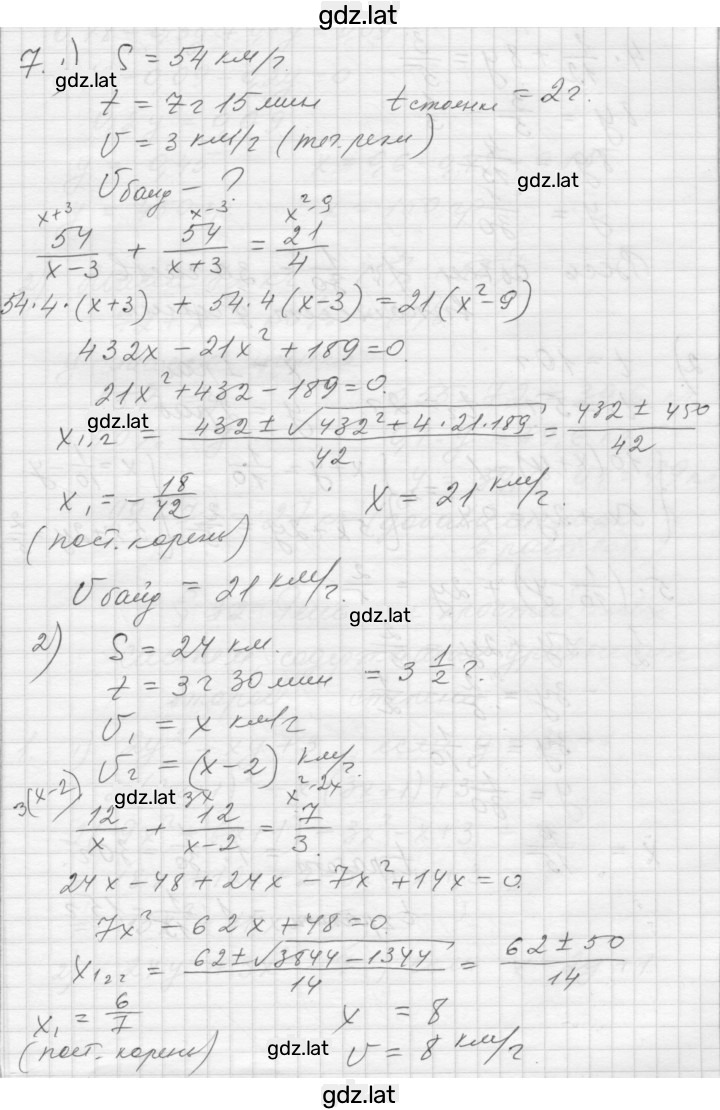 gdz.lat
7. 1) S = 54 км/г.
gdz.lat
t = 7г 15 мин t стоянки = 2г.
v = 3 км/г (теч. реки)
v байд – ? gdz.lat
x+3 x–3 x²–9
54/(x–3) + 54/(x+3) = 21/4
54·4·(x+3) + 54·4(x–3) = 21(x²–9)
432x – 21x² + 189 = 0.
21x² + 432 – 189 = 0.
gdz.lat
x₁,₂ = (432 ± √(432² + 4·21·189))/42 = (432 ± 450)/42
x₁ = – 18/42 x = 21 км/г.
(пост. корень)
v байд = 21 км/г.
gdz.lat
2) S = 24 км.
t = 3г 30 мин = 3 1/2 г.
v₁ = x км/г
v₂ = (x–2) км/г.
3(x–2) gdz.lat 3x x²–2x
12/x + 12/(x–2) = 7/3.
24x – 48 + 24x – 7x² + 14x = 0.
7x² – 62x + 48 = 0.
x₁,₂ = (62 ± √(3844 – 1344))/14 = (62 ± 50)/14
x₁ = 6/7 x = 8
(пост. корень) gdz.lat v = 8 км/г.
gdz.lat